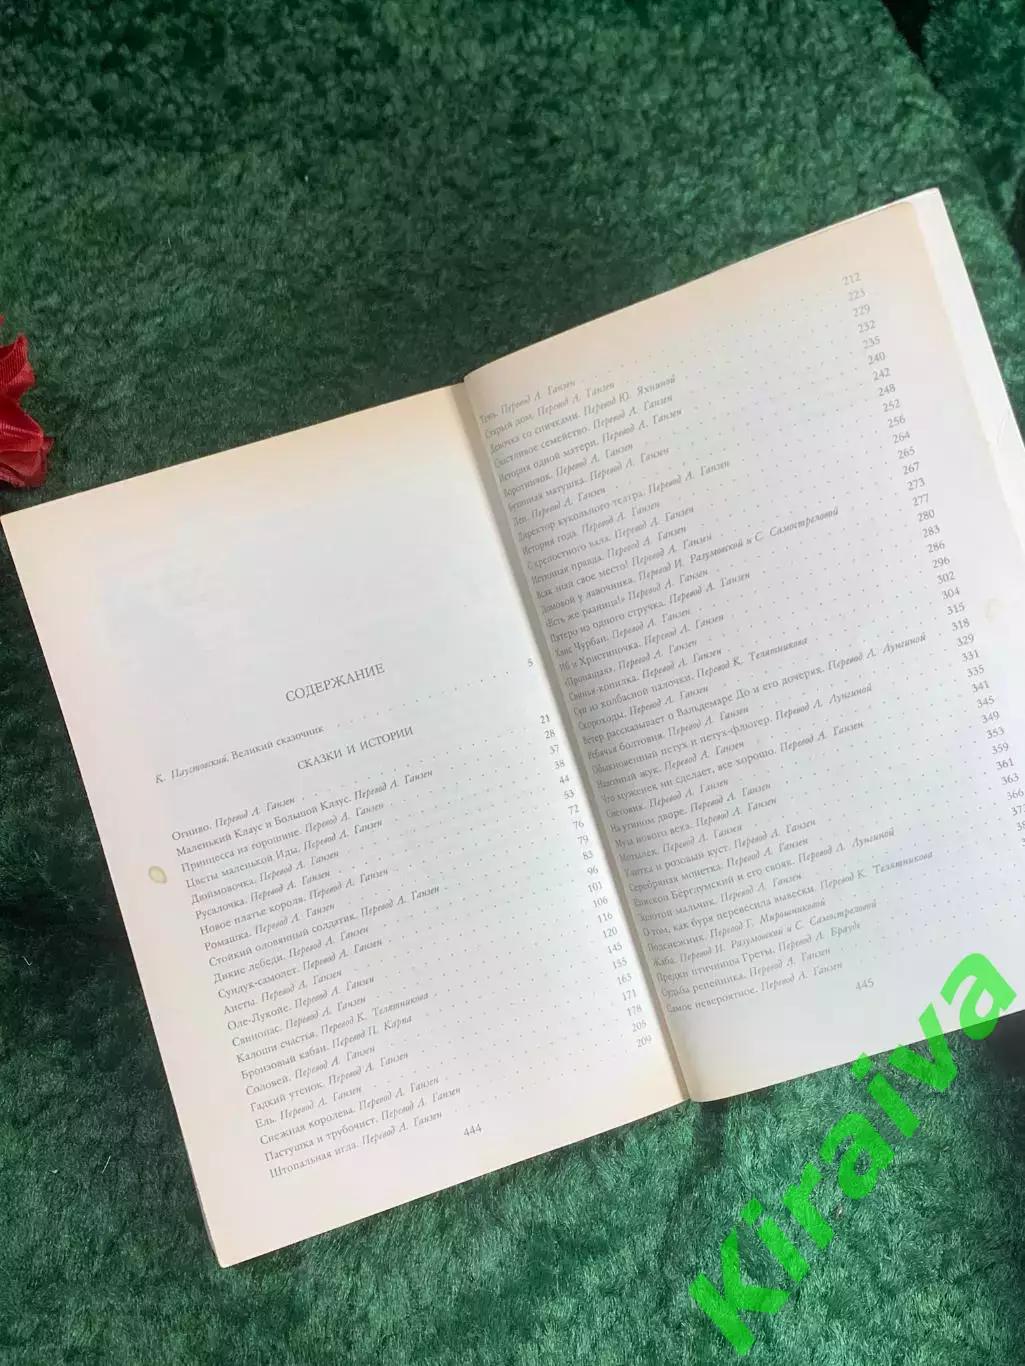 СОДЕРЖАНИЕ
К. Паустовский. Великий сказочник 5
СКАЗКИ И ИСТОРИИ
Огниво. Перевод А. Ганзен 21
Маленький Клаус и Большой Клаус. Перевод А. Ганзен 28
Принцесса на горошине. Перевод А. Ганзен 37
Цветы маленькой Иды. Перевод А. Ганзен 38
Дюймовочка. Перевод А. Ганзен 44
Русалочка. Перевод А. Ганзен 53
Новое платье короля. Перевод А. Ганзен 72
Ромашка. Перевод А. Ганзен 76
Стойкий оловянный солдатик. Перевод А. Ганзен 79
Дикие лебеди. Перевод А. Ганзен 83
Сундук-самолет. Перевод А. Ганзен 96
Аисты. Перевод А. Ганзен 101
Оле-Лукойе. Перевод А. Ганзен 106
Свинопас. Перевод А. Ганзен 116
Калоши счастья. Перевод К. Телятникова 120
Бронзовый кабан. Перевод П. Карпа 145
Соловей. Перевод А. Ганзен 155
Гадкий утенок. Перевод А. Ганзен 163
Ель. Перевод А. Ганзен 171
Снежная королева. Перевод А. Ганзен 178
Пастушка и трубочист. Перевод А. Ганзен 205
Штопальная игла. Перевод А. Ганзен 209
444
Тень. Перевод А. Ганзен 212
Старый дом. Перевод А. Ганзен 223
Девочка со спичками. Перевод Ю. Яхниной 229
Счастливое семейство. Перевод А. Ганзен 232
История одной матери. Перевод А. Ганзен 235
Воротничок. Перевод А. Ганзен 240
Бузинная матушка. Перевод А. Ганзен 242
Лен. Перевод А. Ганзен 248
Директор кукольного театра. Перевод А. Ганзен 252
История года. Перевод А. Ганзен 256
С крепостного вала. Перевод А. Ганзен 264
Истинная правда. Перевод А. Ганзен 265
Всяк знай свое место! Перевод А. Ганзен 267
Домовой у лавочника. Перевод И. Разумовской и С. Самостреловой 273
«Есть же разница!» Перевод А. Ганзен 277
Пятеро из одного стручка. Перевод А. Ганзен 280
Ханс Чурбан. Перевод А. Ганзен 283
Иб и Христиночка. Перевод А. Ганзен 286
«Пропащая». Перевод А. Ганзен 296
Свинья-копилка. Перевод А. Ганзен 302
Суп из колбасной палочки. Перевод К. Телятникова 304
Скороходы. Перевод А. Ганзен 315
Ветер рассказывает о Вальдемаре До и его дочерях. Перевод А. Ганзен 318
Ребячья болтовня. Перевод А. Ганзен 329
Обыкновенный петух и петух-флюгер. Перевод Л. Лунгиной 331
Навозный жук. Перевод А. Ганзен 335
Что муженек ни сделает, все хорошо. Перевод А. Ганзен 341
Снеговик. Перевод А. Ганзен 345
На утином дворе. Перевод А. Ганзен 349
Муза нового века. Перевод А. Ганзен 353
Мотылек. Перевод А. Ганзен 359
Улитка и розовый куст. Перевод А. Ганзен 361
Серебряная монетка. Перевод А. Ганзен 363
Епископ Бёрглумский и его свояк. Перевод Л. Лунгиной 366
Золотой мальчик. Перевод А. Ганзен
О том, как буря перевесила вывески. Перевод К. Телятникова
Подснежник. Перевод Г. Мирошниковой
Жаба. Перевод И. Разумовской и С. Самостреловой
Предки птичницы Греты. Перевод Л. Брауде
Судьба репейника. Перевод А. Ганзен
Самое невероятное. Перевод А. Ганзен
445
Kiraiva